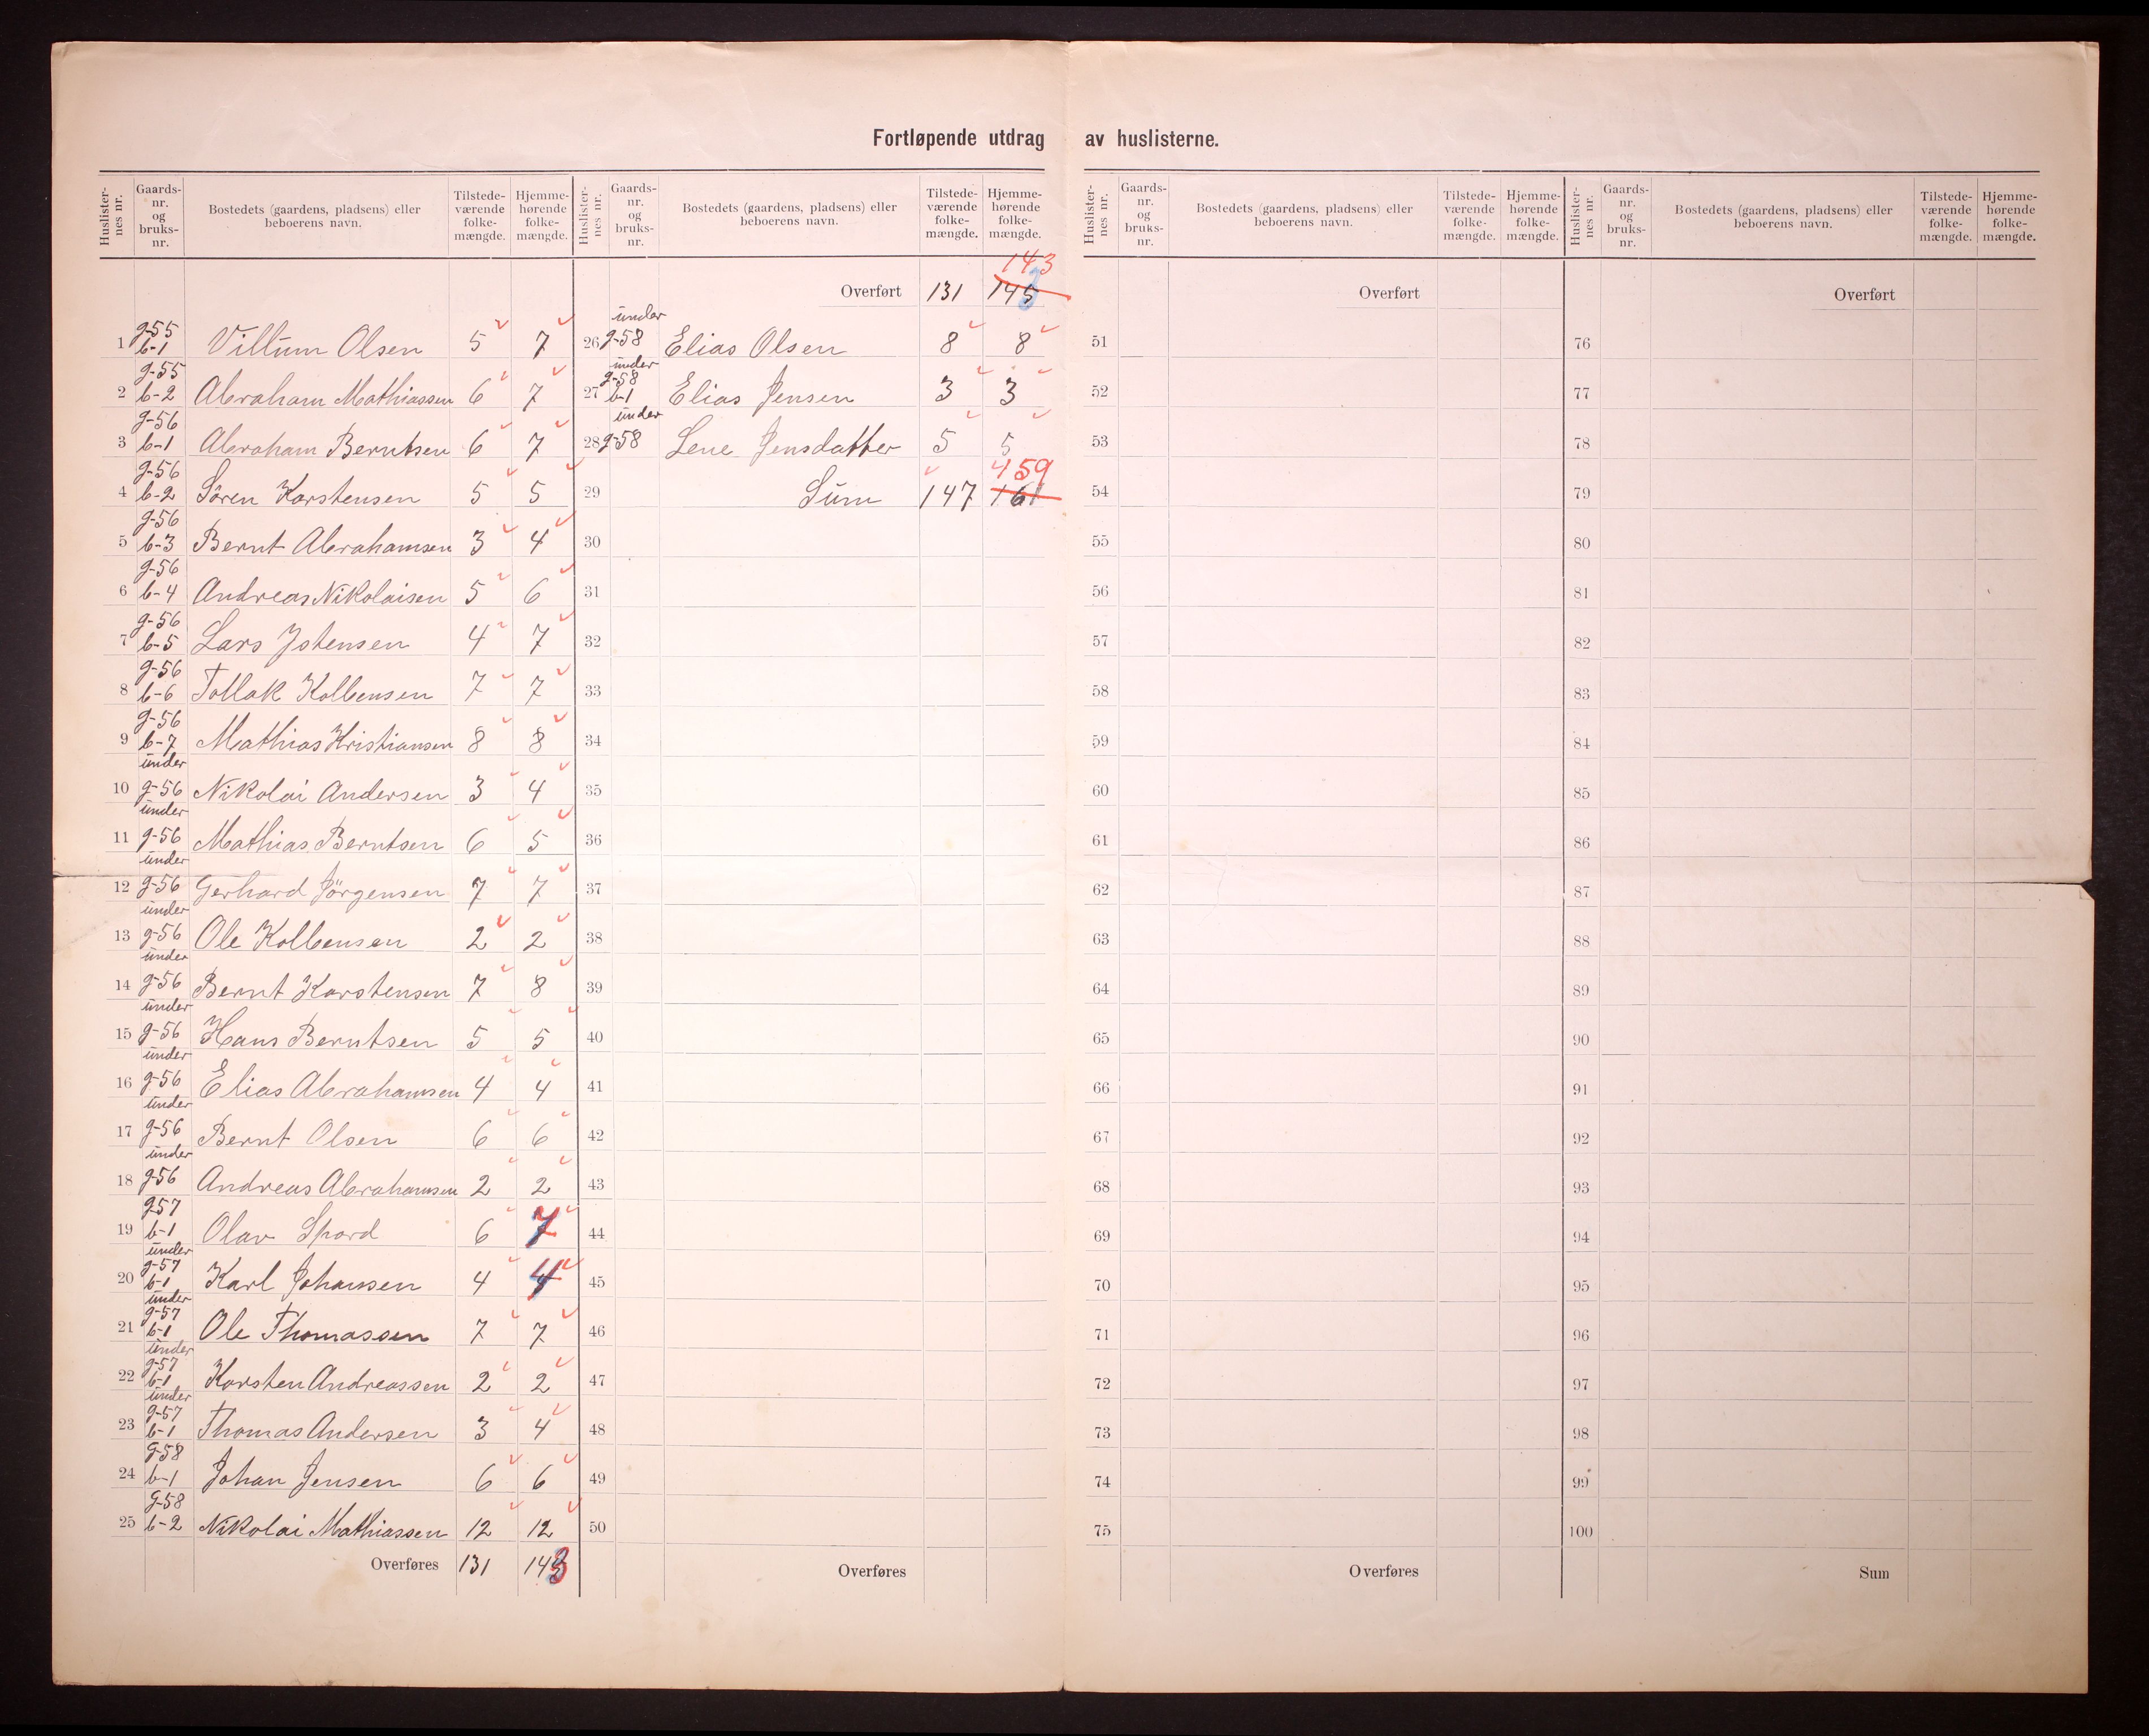 Fortløpende utdrag av huslisterne.
Huslister-nes nr. Gaards-nr. og bruks-nr. Bostedets (gaardens, pladsens) eller beboerens navn. Tilstede-værende folke-mængde. Hjemme-hørende folke-mængde.
1 g-55 b-1 Villum Olsen 5 7
2 g-55 b-2 Abraham Mathiassen 6 7
3 g-56 b-1 Abraham Berntsen 6 7
4 g-56 b-2 Sören Karstensen 5 5
5 g-56 b-3 Bernt Abrahamsen 3 4
6 g-56 b-4 Andreas Nikolaisen 5 6
7 g-56 b-5 Lars Jstensen 4 7
8 g-56 b-6 Tollak Kolbensen 7 7
9 g-56 b-7 Mathias Kristiansen 8 8
10 under g-56 Nikolai Andersen 3 4
11 under g-56 Mathias Berntsen 6 5
12 under g-56 Gerhard Jörgensen 7 7
13 under g-56 Ole Kolbensen 2 2
14 under g-56 Bernt Karstensen 7 8
15 under g-56 Hans Berntsen 5 5
16 under g-56 Elias Abrahamsen 4 4
17 under g-56 Bernt Olsen 6 6
18 under g-56 Andreas Abrahamsen 2 2
19 g-57 b-1 Olav Spord 6 7
20 under g-57 b-1 Karl Johansen 4 4
21 under g-57 b-1 Ole Thomassen 7 7
22 under g-57 b-1 Karsten Andreassen 2 2
23 under g-57 b-1 Thomas Andersen 3 4
24 g-58 b-1 Johan Jensen 6 6
25 g-58 b-2 Nikolai Mathiassen 12 12
Overføres 131 143
Huslister-nes nr. Gaards-nr. og bruks-nr. Bostedets (gaardens, pladsens) eller beboerens navn. Tilstede-værende folke-mængde. Hjemme-hørende folke-mængde.
143
Overført 131 145
26 under g-58 Elias Olsen 8 8
27 under g-58 b-1 Elias Jensen 3 3
28 under g-58 Lene Jensdatter 5 5
159
29 Sum 147 161
30
31
32
33
34
35
36
37
38
39
40
41
42
43
44
45
46
47
48
49
50
Overføres
Huslister-nes nr. Gaards-nr. og bruks-nr. Bostedets (gaardens, pladsens) eller beboerens navn. Tilstede-værende folke-mængde. Hjemme-hørende folke-mængde.
Overført
51
52
53
54
55
56
57
58
59
60
61
62
63
64
65
66
67
68
69
70
71
72
73
74
75
Overføres
Huslister-nes nr. Gaards-nr. og bruks-nr. Bostedets (gaardens, pladsens) eller beboerens navn. Tilstede-værende folke-mængde. Hjemme-hørende folke-mængde.
Overført
76
77
78
79
80
81
82
83
84
85
86
87
88
89
90
91
92
93
94
95
96
97
98
99
100
Sum